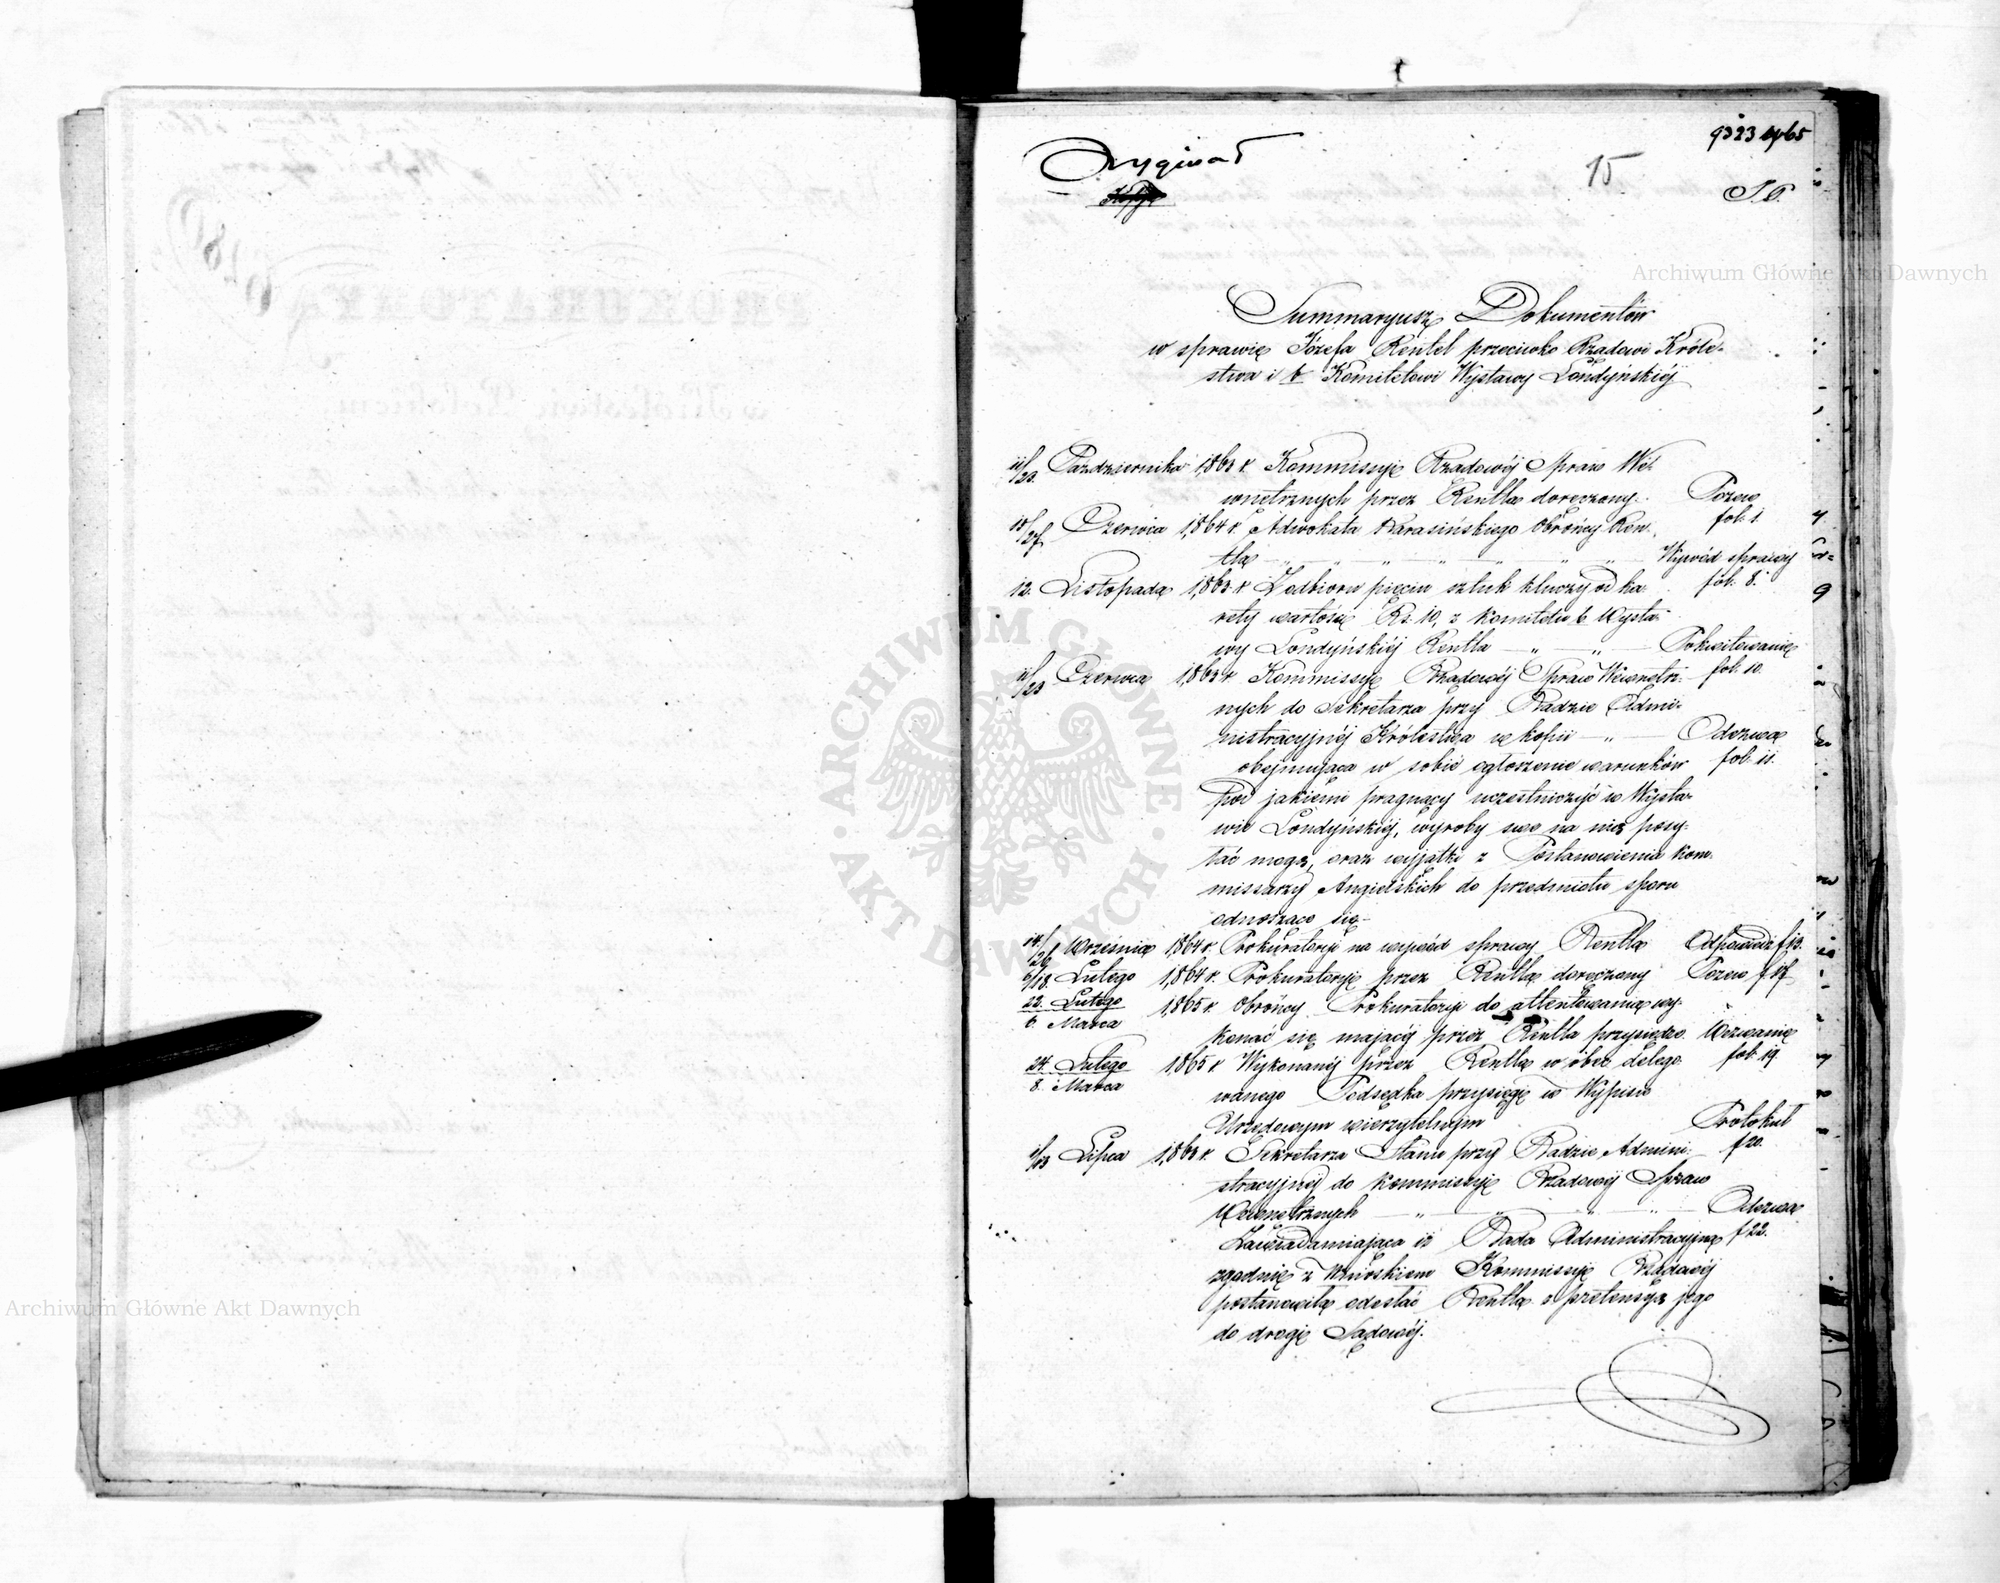 9323 1965
Oryginał
15
Kopija
S. P.
Summaryusz Dokumentów
w sprawie Józefa Rentel przeciwko Rządowi Króle-
stwa i b. Komitetowi Wystawy Londyńskiéj
11/23 Października 1863 r. Kommissyi Rządowéj Spraw We-
wnętrznych przez Rentla doręczony Pozew
fol. 1.
15/27 Czerwca 1864 r. Adwokata Karasińskiego Obrońcy Ren-
tla — „ — „ — „ — „ — „ — „ Wywód sprawy
fol. 8.
12. Listopada 1863 r. Z odbioru pięciu sztuk kluczy od ka-
rety wartości Rs. 10, z komitetu b. Wysta-
wy Londyńskiéj Rentla — „ — „ — Pokwitowanie
fol. 10.
11/23 Czerwca 1863 r. Kommissyi Rządowéj Spraw Wewnętrz-
nych do Sekretarza przy Radzie Admi-
nistracyjnéj Królestwa w kopii — „ — Odezwa
obejmująca w sobie ogłoszenie warunków fol. 11.
pod jakiemi pragnący uczestniczyć w Wysta-
wie Londyńskiéj, wyroby swe na nią posy-
łać mogą, oraz wyjątki z Postanowienia kom-
missarzy Angielskich do przedmiotu sporu
odnoszące się.
14/26 Września 1864 r. Prokuratoryi na wywód sprawy Rentla Odpowiedź f. 13.
6/18. Lutego 1864 r. Prokuratoryi przez Rentla doręczony Pozew f. 17
22. Lutego
6. Marca 1865 r. Obrońcy Prokuratoryi do attentowania wy-
konać się mającéj przez Rentla przysiędze Wezwanie
fol. 19.
24. Lutego
8. Marca 1865 r. Wykonanéj przez Rentla w obec delego-
wanego Podsędka przysięgi w Wypisie
Urzędowym wierzytelnym Protokuł
f. 20.
1/13 Lipca 1863 r. Sekretarza Stanu przy Radzie Admini-
stracyjnéj do kommissyi Rządowéj Spraw
Wewnętrznych — „ — „ — „ — „ Odezwa
Zawiadamiająca iż Rada Administracyjna f. 22.
zgodnie z Wnioskiem Kommissyi Rządowéj
postanowiła odesłać Rentla z pretensyą jego
do drogi Sądowéj.
Archiwum Główne Akt Dawnych
ARCHIWUM GŁÓWNE · AKT DAWNYCH ·
Archiwum Główne Akt Dawnych